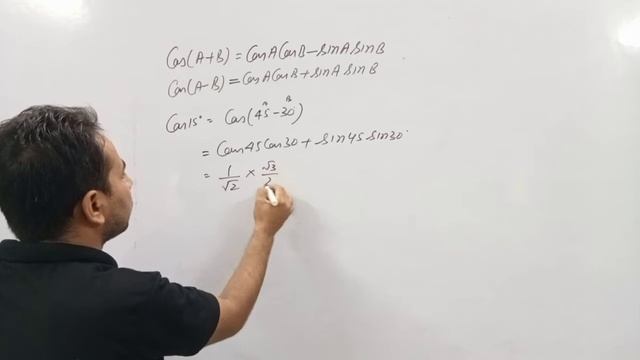 Cos(A+B) = CosA CosB - sinA sinB
Cos(A-B) = CosA CosB + sinA sinB
A B
Cos15° = Cos(45-30)
= Cos45 Cos30 + sin45 sin30
= 1/√2 × √3/2